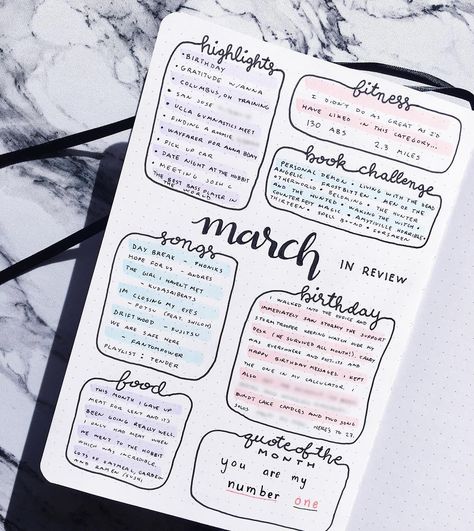 highlights
• BIRTHDAY
• GRATITUDE W/ANNA
• COLUMBUS, OH TRAINING
• SAN JOSE
• UCLA GYMNASTICS MEET
• FINDING A ROOMIE
• WAYFARER FOR ALMA BDAY
• PICK UP CAR
• DATE NIGHT AT THE HOBBIT
• MEETING JOSH C
THE BEST BASS PLAYER IN
THE WORLD
fitness
I DIDN'T DO AS GREAT AS I'D
HAVE LIKED IN THIS CATEGORY...
130 ABS 2.3 MILES
book challenge
PERSONAL DEMON • LIVING WITH THE DEAD
ANGELIC • FROSTBITTEN • MEN OF THE
OTHERWORLD • RELOADING • THE HUNTER
AND THE HUNTED • WAKING THE WITCH
COUNTERFEIT MAGIC • AMITYVILLE HORRIBLE
THIRTEEN • SPELL BOUND • FORSAKEN
march
IN REVIEW
songs
DAY BREAK - PHONIKS
HOPE FOR US - ANDRES
THE GIRL I HAVEN'T MET
- KUDASAIBEATS
IM CLOSING MY EYES
- POTSU (FEAT. SHILOH)
DRIFTWOOD - FUJITSU
WE ARE SAFE HERE
- FANTOMPOWER
PLAYLIST: TENDER
birthday
I WALKED INTO THE OFFICE AND
IMMEDIATELY SAW STARKY THE SUPPORT
STORM TROOPER KEEPING WATCH OVER MY
DESK (HE SURVIVED ALL MONTH!). CANDY
WAS EVERYWHERE AND POST-ITS AND
HAPPY BIRTHDAY MESSAGES. I KEPT
THE ONE IN MY CALCULATOR. I
ALSO
BUNDT CAKE CANDLES AND TWO SONG
SOLOS. HERES TO 27.
food
THIS MONTH I GAVE UP
MEAT FOR LENT AND IT'S
BEEN GOING REALLY WELL.
I ONLY HAD MEAT WHEN
WE WENT TO THE HOBBIT
WHICH WAS INCREDIBLE.
LOTS OF OATMEAL, GARDEIN
AND RAMEN/SUSHI
quote of the
MONTH
you are my
number one